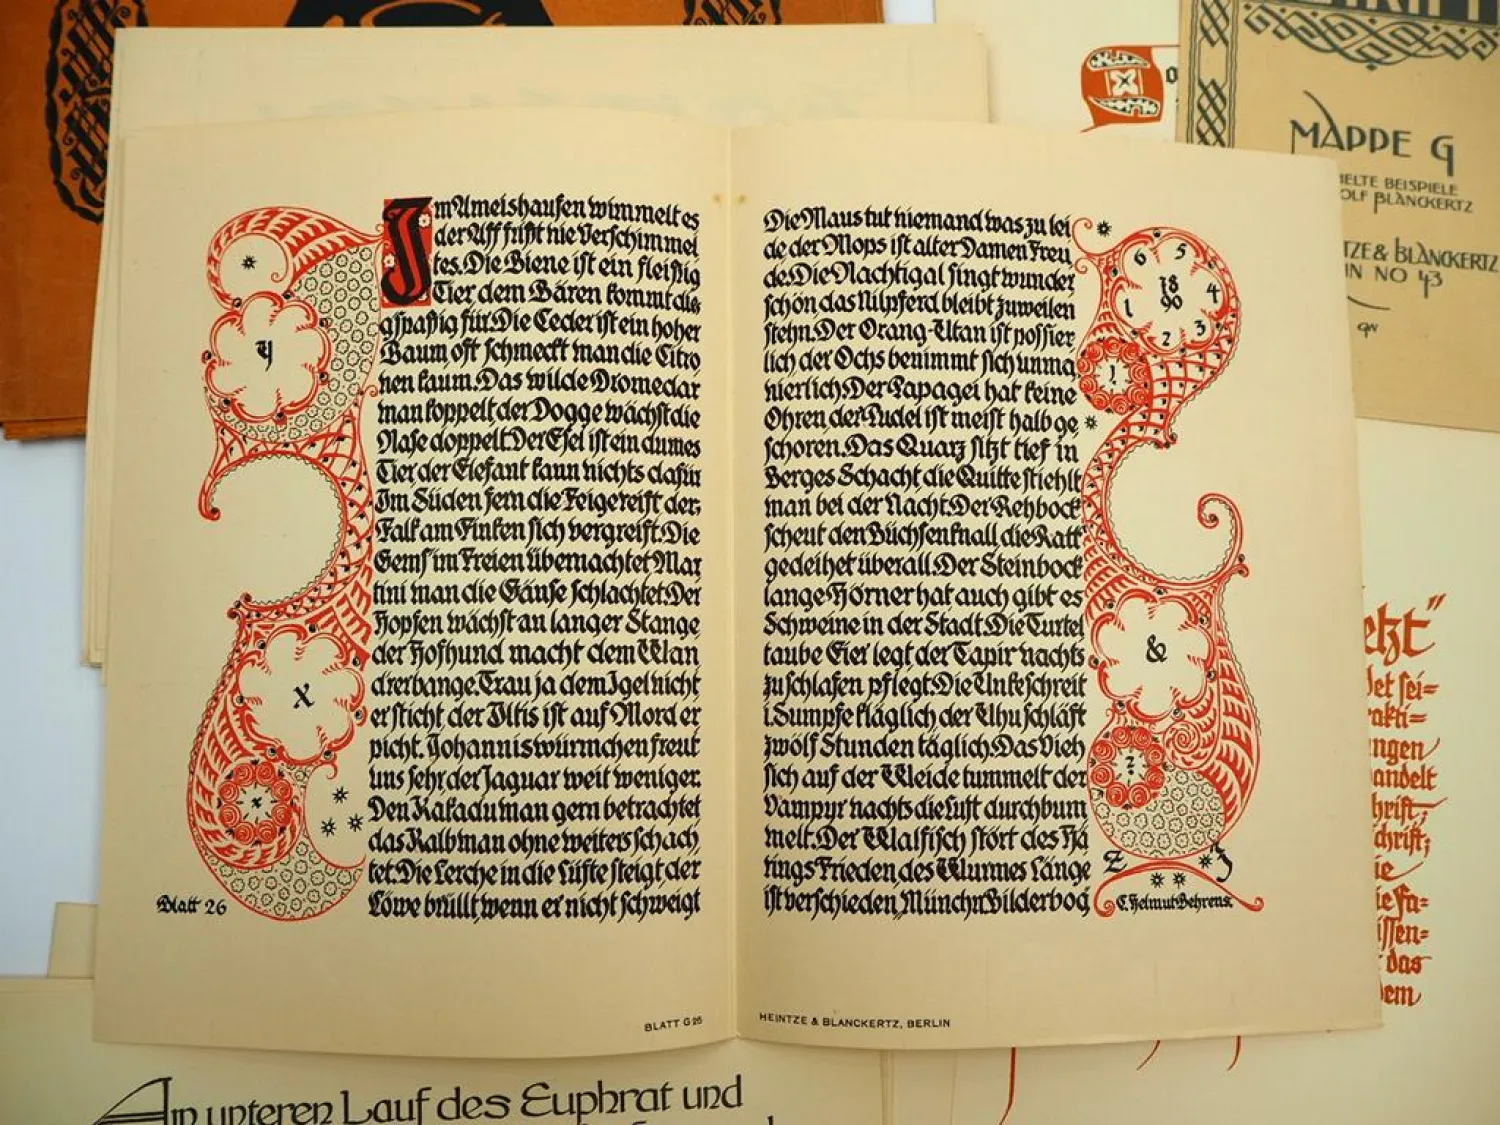 Im Ameishaufen wimmelt es
der Aff frißt nie Verschimmel
tes. Die Biene ist ein fleißig
Tier dem Bären kommt dies
gspaßig für. Die Ceder ist ein hoher
Baum oft schmeckt man die Citro
nen kaum. Das wilde Dromedar
man koppelt der Dogge wächst die
Nase doppelt. Der Esel ist ein dumes
Tier der Elefant kann nichts dafür
Im Süden fern die Feige reift der
Falk am Finken sich vergreift. Die
Gems im Freien übernachtet Mar
tini man die Gänse schlachtet. Der
Hopfen wächst an langer Stange
der Hofhund macht dem Wan
drer bange. Trau ja dem Igel nicht
er sticht der Iltis ist auf Mord er
picht. Johanniswürmchen freut
uns sehr der Jaguar weit weniger.
Den Kakadu man gern betrachtet
das Kalb man ohne weiters schach
tet. Die Lerche in die Lüfte steigt der
Löwe brüllt, wenn er nicht schweigt
y
x
x
Blatt 26
BLATT G 26
Die Maus tut niemand was zu lei
de der Mops ist alter Damen Freu
de. Die Nachtigal singt wunder
schön das Nilpferd bleibt zuweilen
stehn. Der Orang-Utan ist possier
lich der Ochs benimmt sich unma
nierlich. Der Papagei hat keine
Ohren, der Pudel ist meist halb ge
schoren. Das Quarz sitzt tief in
Berges Schacht die Quitte stiehlt
man bei der Nacht. Der Rehbock
scheut den Büchsenknall, die Ratt
gedeihet überall. Der Steinbock
lange Hörner hat auch gibt es
Schweine in der Stadt. Die Turtel
taube Eier legt der Tapir nachts
zu schlafen pflegt. Die Unke schreit
i. Sumpfe kläglich der Uhu schläft
zwölf Stunden täglich. Das Vieh
sich auf der Weide tummelt der
Vampyr nachts die Luft durchbum
melt. Der Walfisch stört des Hä
rings Frieden des Wurmes Länge
ist verschieden, Münchn Bilderbog
6 5
18 4
90
1 3
2
!
&
?
Z J
C. Helmut Behrens.
HEINTZE & BLANCKERTZ, BERLIN
MAPPE G
BEISPIELE
BLANCKERTZ
TZE & BLANCKERTZ
IN NO 43
andelt
das
dem
An unteren Lauf des Euphrat und